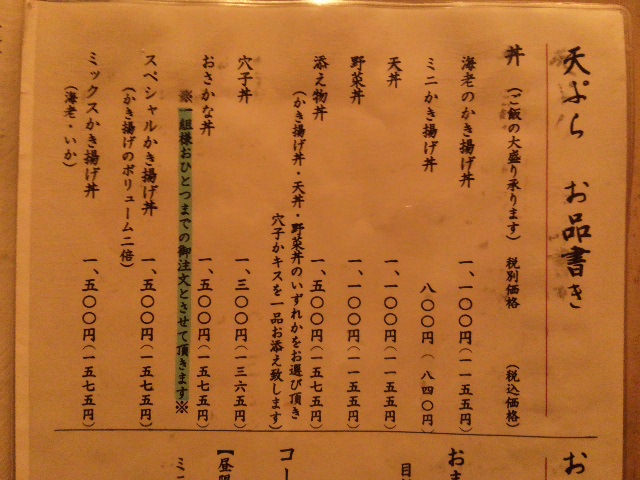 天ぷら お品書き
丼 (ご飯の大盛り承ります) 税別価格 (税込価格)
海老のかき揚げ丼 一、一〇〇円(一一五五円)
ミニかき揚げ丼 八〇〇円(八四〇円)
天丼 一、一〇〇円(一一五五円)
野菜丼 一、一〇〇円(一一五五円)
添え物丼 一、五〇〇円(一五七五円)
(かき揚げ丼・天丼・野菜丼のいずれかをお選び頂き
穴子かキスを一品お添え致します)
穴子丼 一、三〇〇円(一三六五円)
おさかな丼 一、五〇〇円(一五七五円)
※一組様おひとつまでの御注文とさせて頂きます※
スペシャルかき揚げ丼 一、五〇〇円(一五七五円)
(かき揚げのボリューム二倍)
ミックスかき揚げ丼 一、五〇〇円(一五七五円)
(海老・いか)
お
おま
コー
【昼
ミニ